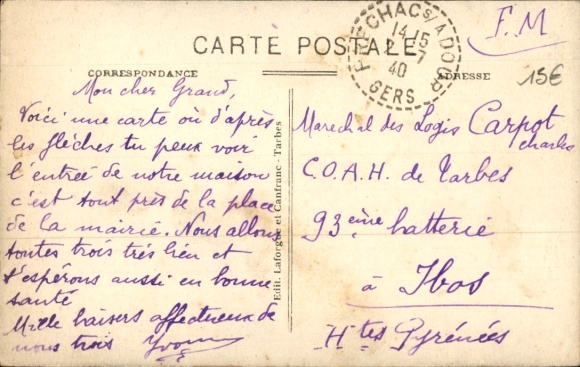 CARTE POSTALE
F.M
CORRESPONDANCE
ADRESSE
15€
PRECHAC s/ ADOUR
14-15
2-7
40
GERS
Mon cher Grand,
Voici une carte où d'après
les flèches tu peux voir
l'entrée de notre maison
c'est tout près de la place
de la mairie. Nous allons
toutes trois très bien et
t'espérons aussi en bonne
santé
Mille baisers affectueux de
nous trois Yvonne
Edit. Laforgue et Canfranc - Tarbes
Marechal des Logis Carpot
Charles
C.O.A.H. de Tarbes
93ème batterie
à Ibos
Htes Pyrénées